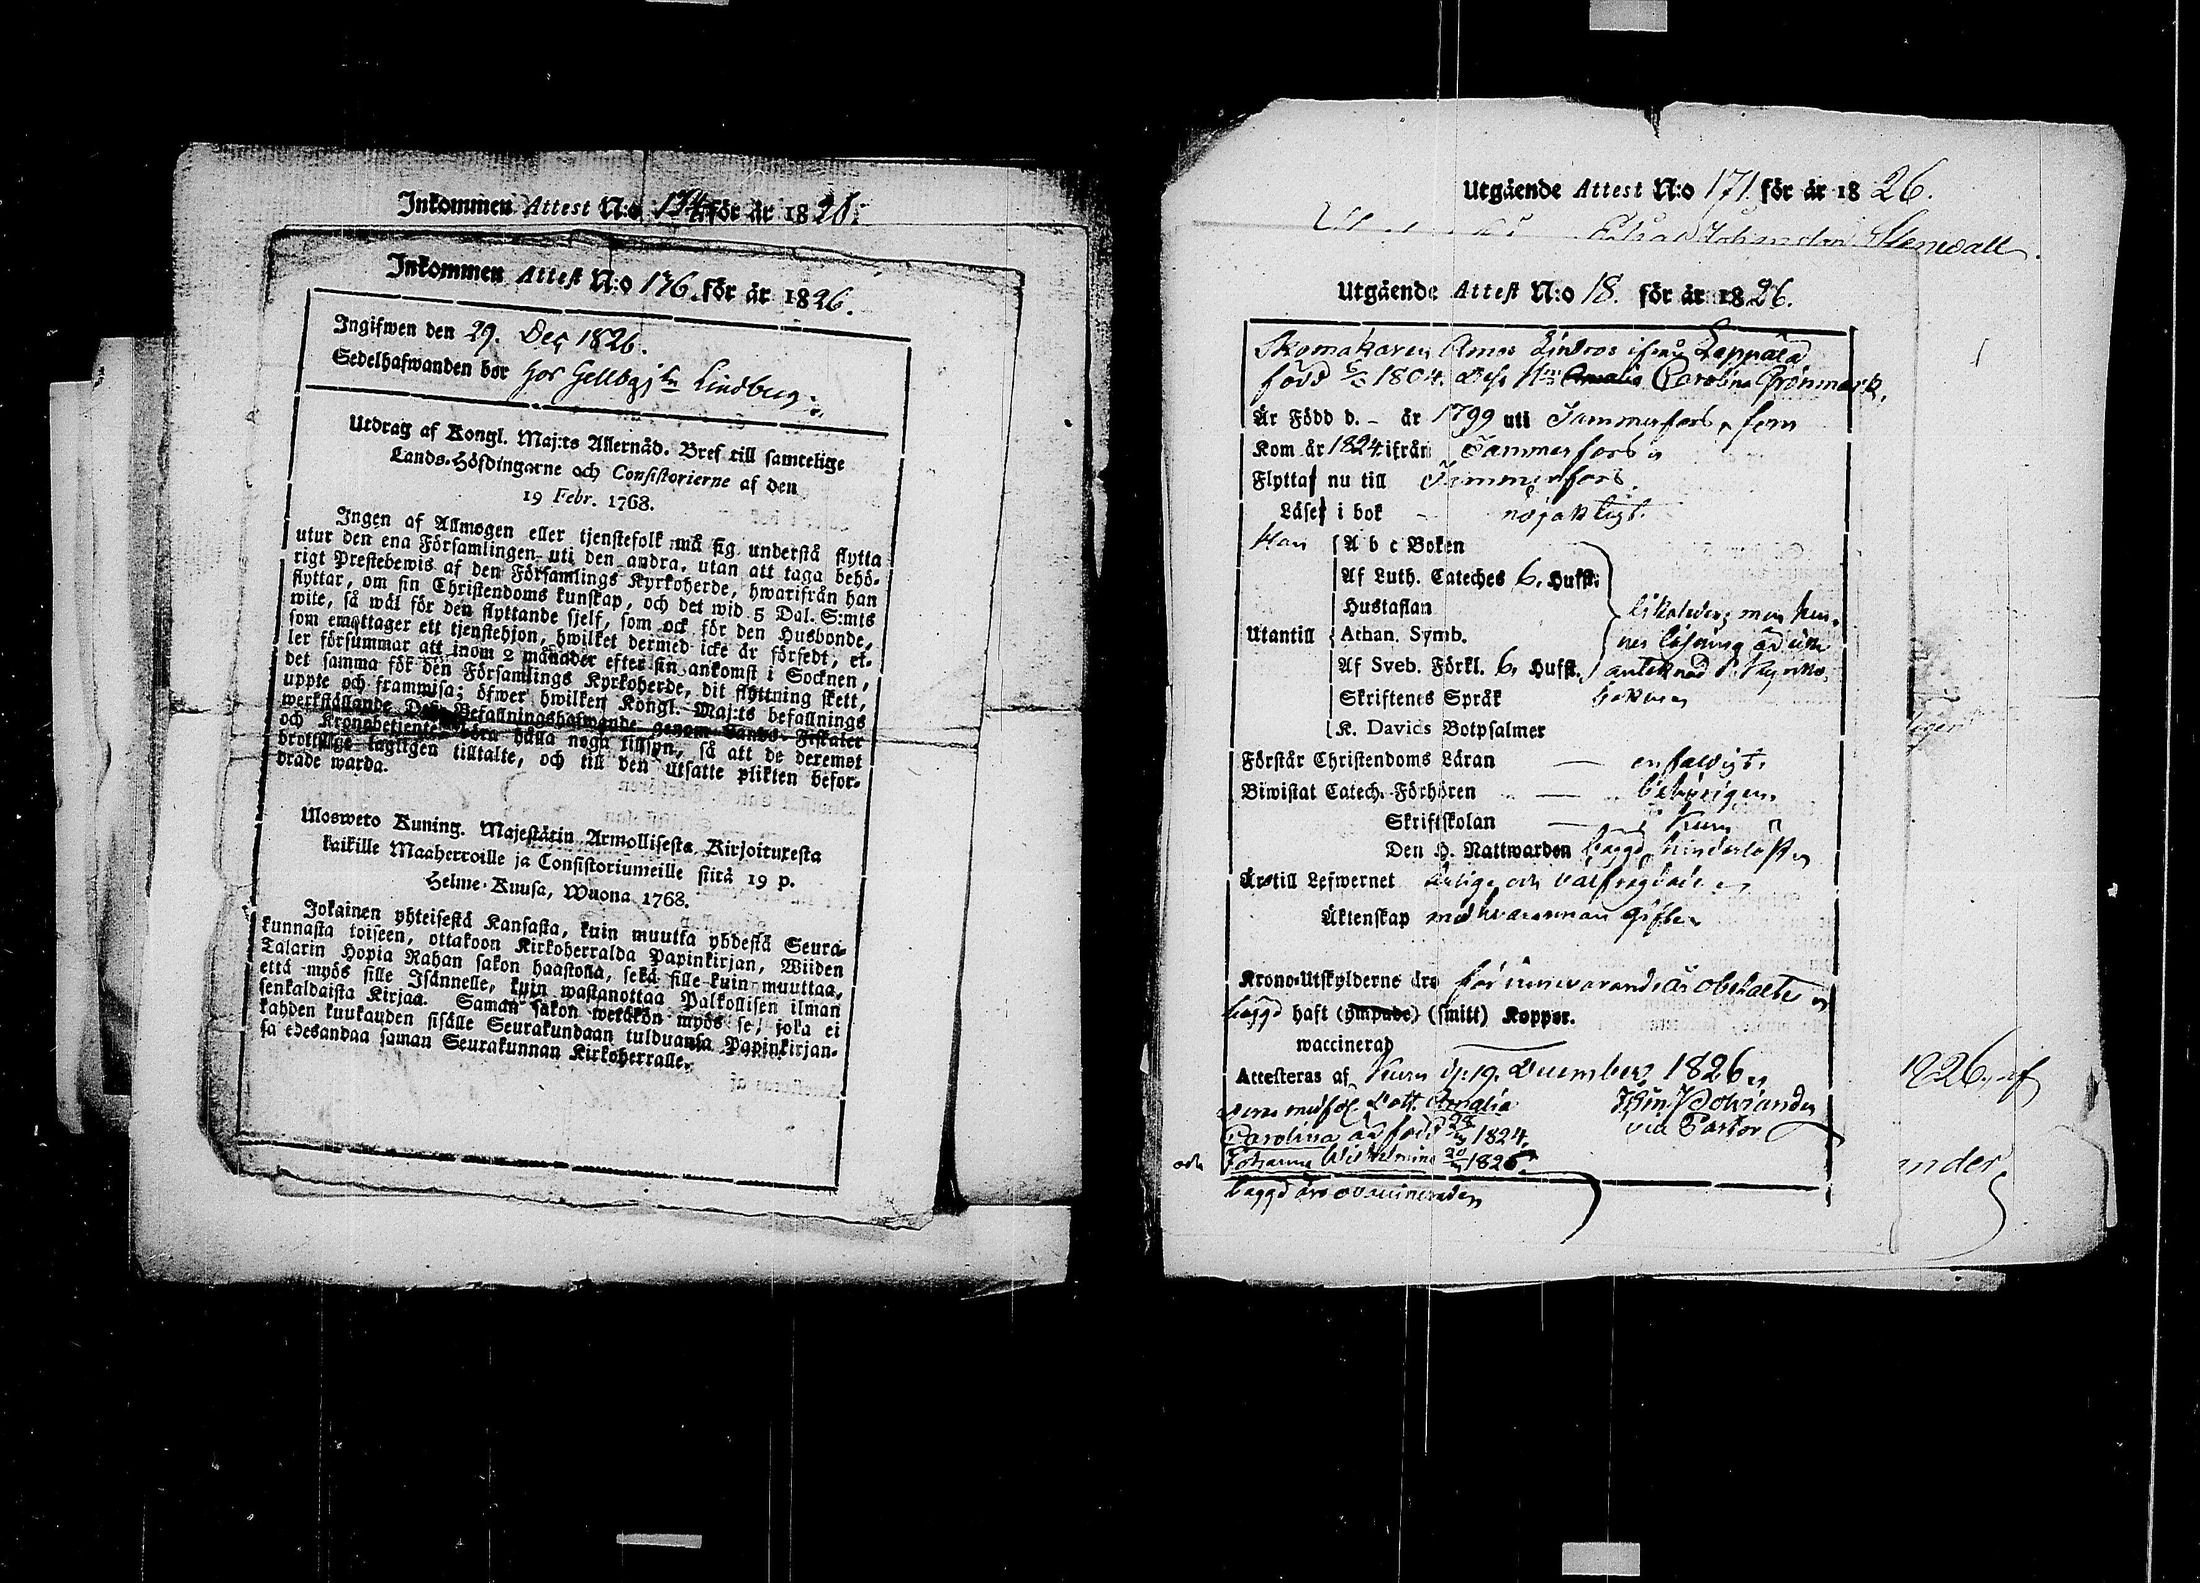 Inkommen Attest N:o 134. för år 1826.
Inkommen Attest N:o 176. för år 1826.
Ingifwen den 29. Dec 1826.
Sedelhafwanden bor hos Lindberg.
Utdrag af Kongl. Maj:ts Allernåd. Bref till samtelige
Lands-Höfdingarne och Consistorierne af den
19 Febr. 1768.
Ingen af Allmogen eller tjenstefolk må sig understå flytta
utur den ena Församlingen uti den andra, utan att taga behö-
rigt Prestebewis af den Församlings Kyrkoherde, hwarifrån han
flyttar, om sin Christendoms kunskap, och det wid 5 Dal. S:mts
wite, så wäl för den flyttande sjelf, som ock för den Husbonde,
som emottager ett tjenstehjon, hwilket dermed icke är försedt, el-
ler försummar att inom 2 månader efter sin ankomst i Socknen,
det samma för den Församlings Kyrkoherde, dit flyttning skett,
uppte och frammwisa; öfwer hwilken Kongl. Maj:ts befallnings
werkställande Dess Befallningshafwande genom Lands-Fiskaler
och Kronobetjente böra hålla noga tillsyn, så att de deremot
brottslige lagligen tilltalte, och till den utsatte plikten befor-
drade warda.
Ulosweto Kuning. Majestätin Armollisesta Kirjoituxesta
kaikille Maaherroille ja Consistoriumeille siitä 19 p.
Helme-Kuusa, Wuona 1768.
Jokainen yhteisestä Kansasta, kuin muutta yhdestä Seura-
kunnasta toiseen, ottakoon Kirkoherralda Papinkirjan, Wiiden
Talarin Hopia Rahan sakon haastolla, sekä sille kuin muuttaa,
että myös sille Isännelle, kuin wastanottaa Palkollisen ilman
senkaldaista Kirjaa. Saman sakon wetäkön myös se, joka ei
kahden kuukauden sisälle Seurakundaan tulduansa Papinkirjan-
sa edesandaa saman Seurakunnan Kirkoherralle.
Utgående Attest N:o 171. för år 1826.
Stenvall
Utgående Attest N:o 18. för år 1826.
Skomakaren Amos Lindroos ifrån Leppälä
född 1804. Dess Hu Amalia Carolina Grönmark,
Är Född d. - år 1799 uti Tammerfors, som
Kom år 1824 ifrån Tammerfors
Flytta nu till Tammerfors.
Läser i bok - nöjaktigt.
Han A b c Boken
Af Luth. Cateches 6. Hufst.
Hustaflan likaledes; men hen-
Utantill Athan. Symb. nes läsning är ein
Af Sveb. Förkl. 6. Hufst. antecknad i Kyrko-
Skriftenes Språk boken
K. Davids Botpsalmer
Förstår Christendoms Läran — enfaldigt.
Biwistat Catech. Förhören — behörigen
Skriftskolan —
Den H. Nattwarden bägge hinderlöst
Äro till Lefwernet ärlige och välfrägdade
Äktenskap med hvarannan gifte
Krono-Utskylderne äro för innevarande år obetalte
bägge haft (ympade) (smitt) Koppor.
waccinerad
Attesteras af Kumo d. 19. December 1826
Dem medföl. Dott. Amalia
Carolina är född 1824,
och Johanna Wilhelmina 1826.
bägge äro ovaccinerade
vice Pastor
1826, af
nder.